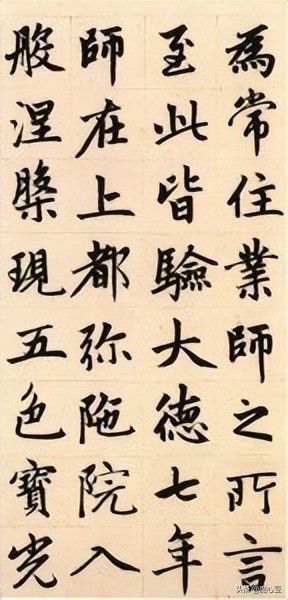 為常住業師之所言
至此皆驗大德七年
師在上都弥陁院入
般涅槃現五色寶光
头条